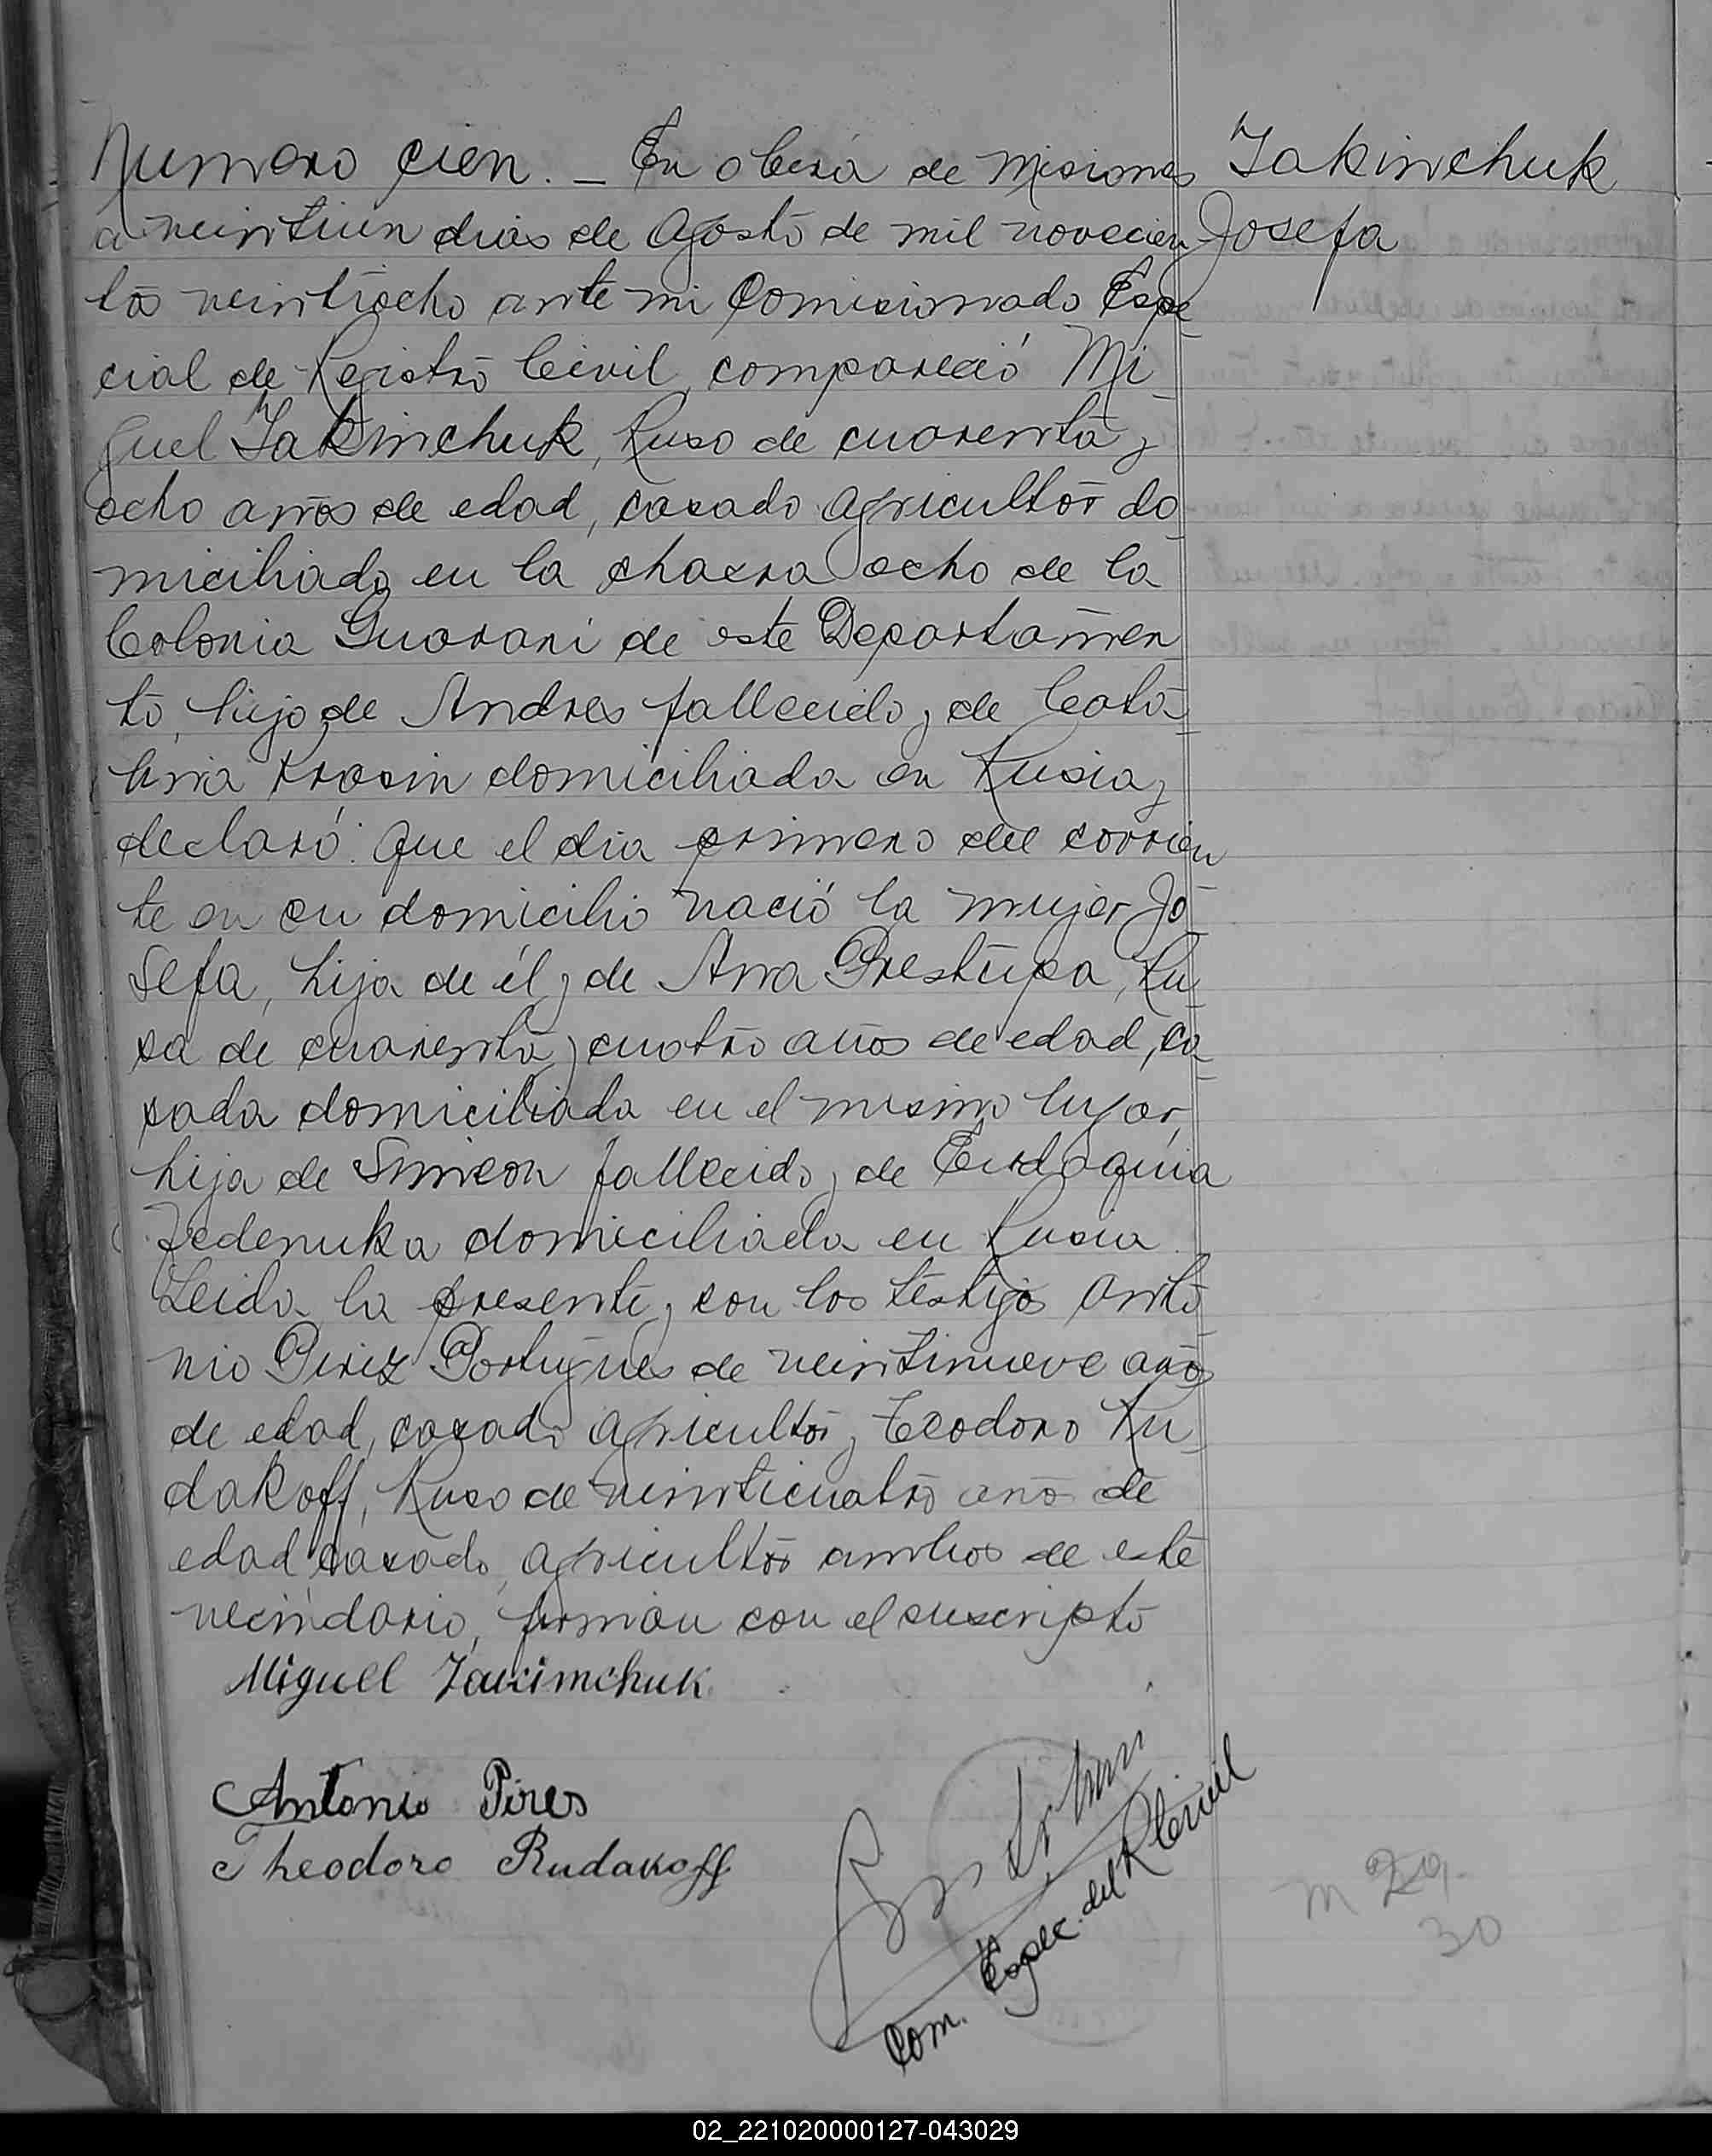 Numero cien. — En Oberá de Misiones
a veintiun dias de Agosto de mil novecien
tos veintiocho ante mi Comisionado Espe
cial de Registro Civil, compareció Mi
guel Iakimchuk, Ruso de cuarenta y
ocho años de edad, casado agricultor do
miciliado en la chacra ocho de la
Colonia Guarani de este Departamen
to, hijo de Andres fallecido y de Cata
lina Krasin domiciliada en Rusia y
declaró: Que el dia primero del corrien
te en su domicilio nació la mujer Jo
sefa, hija de él y de Ana Prestupa, Ru
sa de cuarenta y cuatro años de edad, ca
sada domiciliada en el mismo lugar,
hija de Simeon fallecido y de Eudoquia
Fedenuka domiciliada en Rusia.
Leida la presente y con los testigos Anto
nio Pirez Portugues de veintinueve años
de edad, casado agricultor y Teodoro Ru
dakoff, Ruso de veinticuatro año de
edad casado, agricultor ambos de este
vecindario, firman con el suscripto
Miguel Iakimchuk
Antonio Pires
Theodoro Rudakoff
Com. Espec. del R Civil
Iakimchuk
Josefa
m 29.
30
02_221020000127-043029